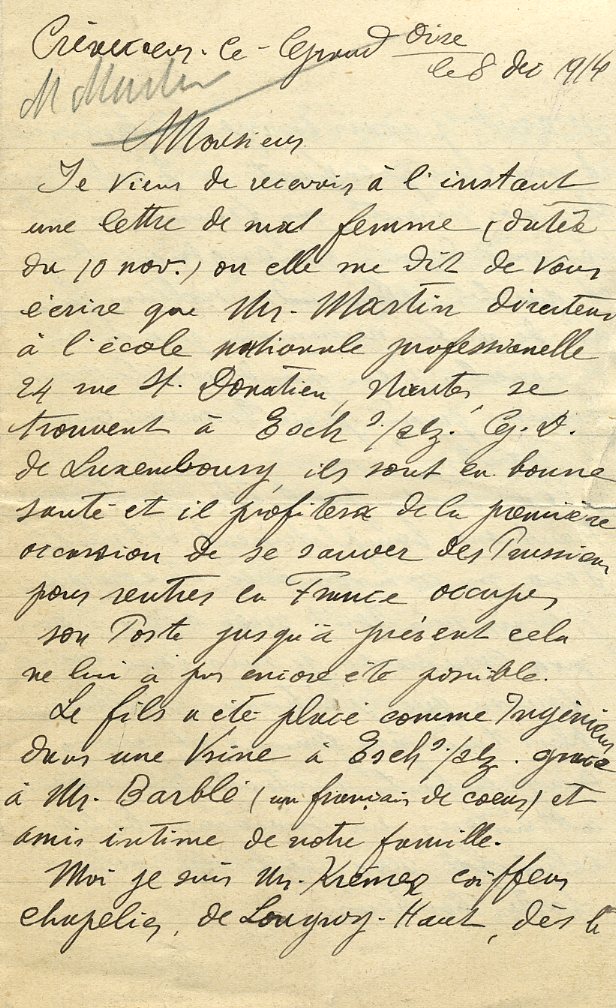 Crèvecoeur-le-Grand Oise
le 8 Dec 1914
M Martin
Monsieur
Je viens de recevoir à l'instant
une lettre de ma femme (datée
du 10 nov.) ou elle me dit de vous
écrire que Mr. Martin directeur
à l'école nationale professionelle
24 rue St. Donatien, Nantes, se
trouvent à Esch s./alz. G. D.
de Luxembourg, ils sont en bonne
santé et il profitera de la première
occassion de se sauver des Prussiens
pour rentrer en France occuper
son Poste jusqu'à présent cela
ne lui à pas encore été possible.
Le fils a été placé comme Ingénieur
dans une Usine à Esch s./alz. grace
à Mr. Barblé (un français de coeur) et
amis intime de notre famille.
Moi je suis Mr. Kremer coiffeur
chapelier, de Longwy-Haut, dès le